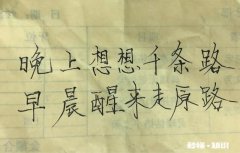 晚上想想千条路
早晨醒来走原路